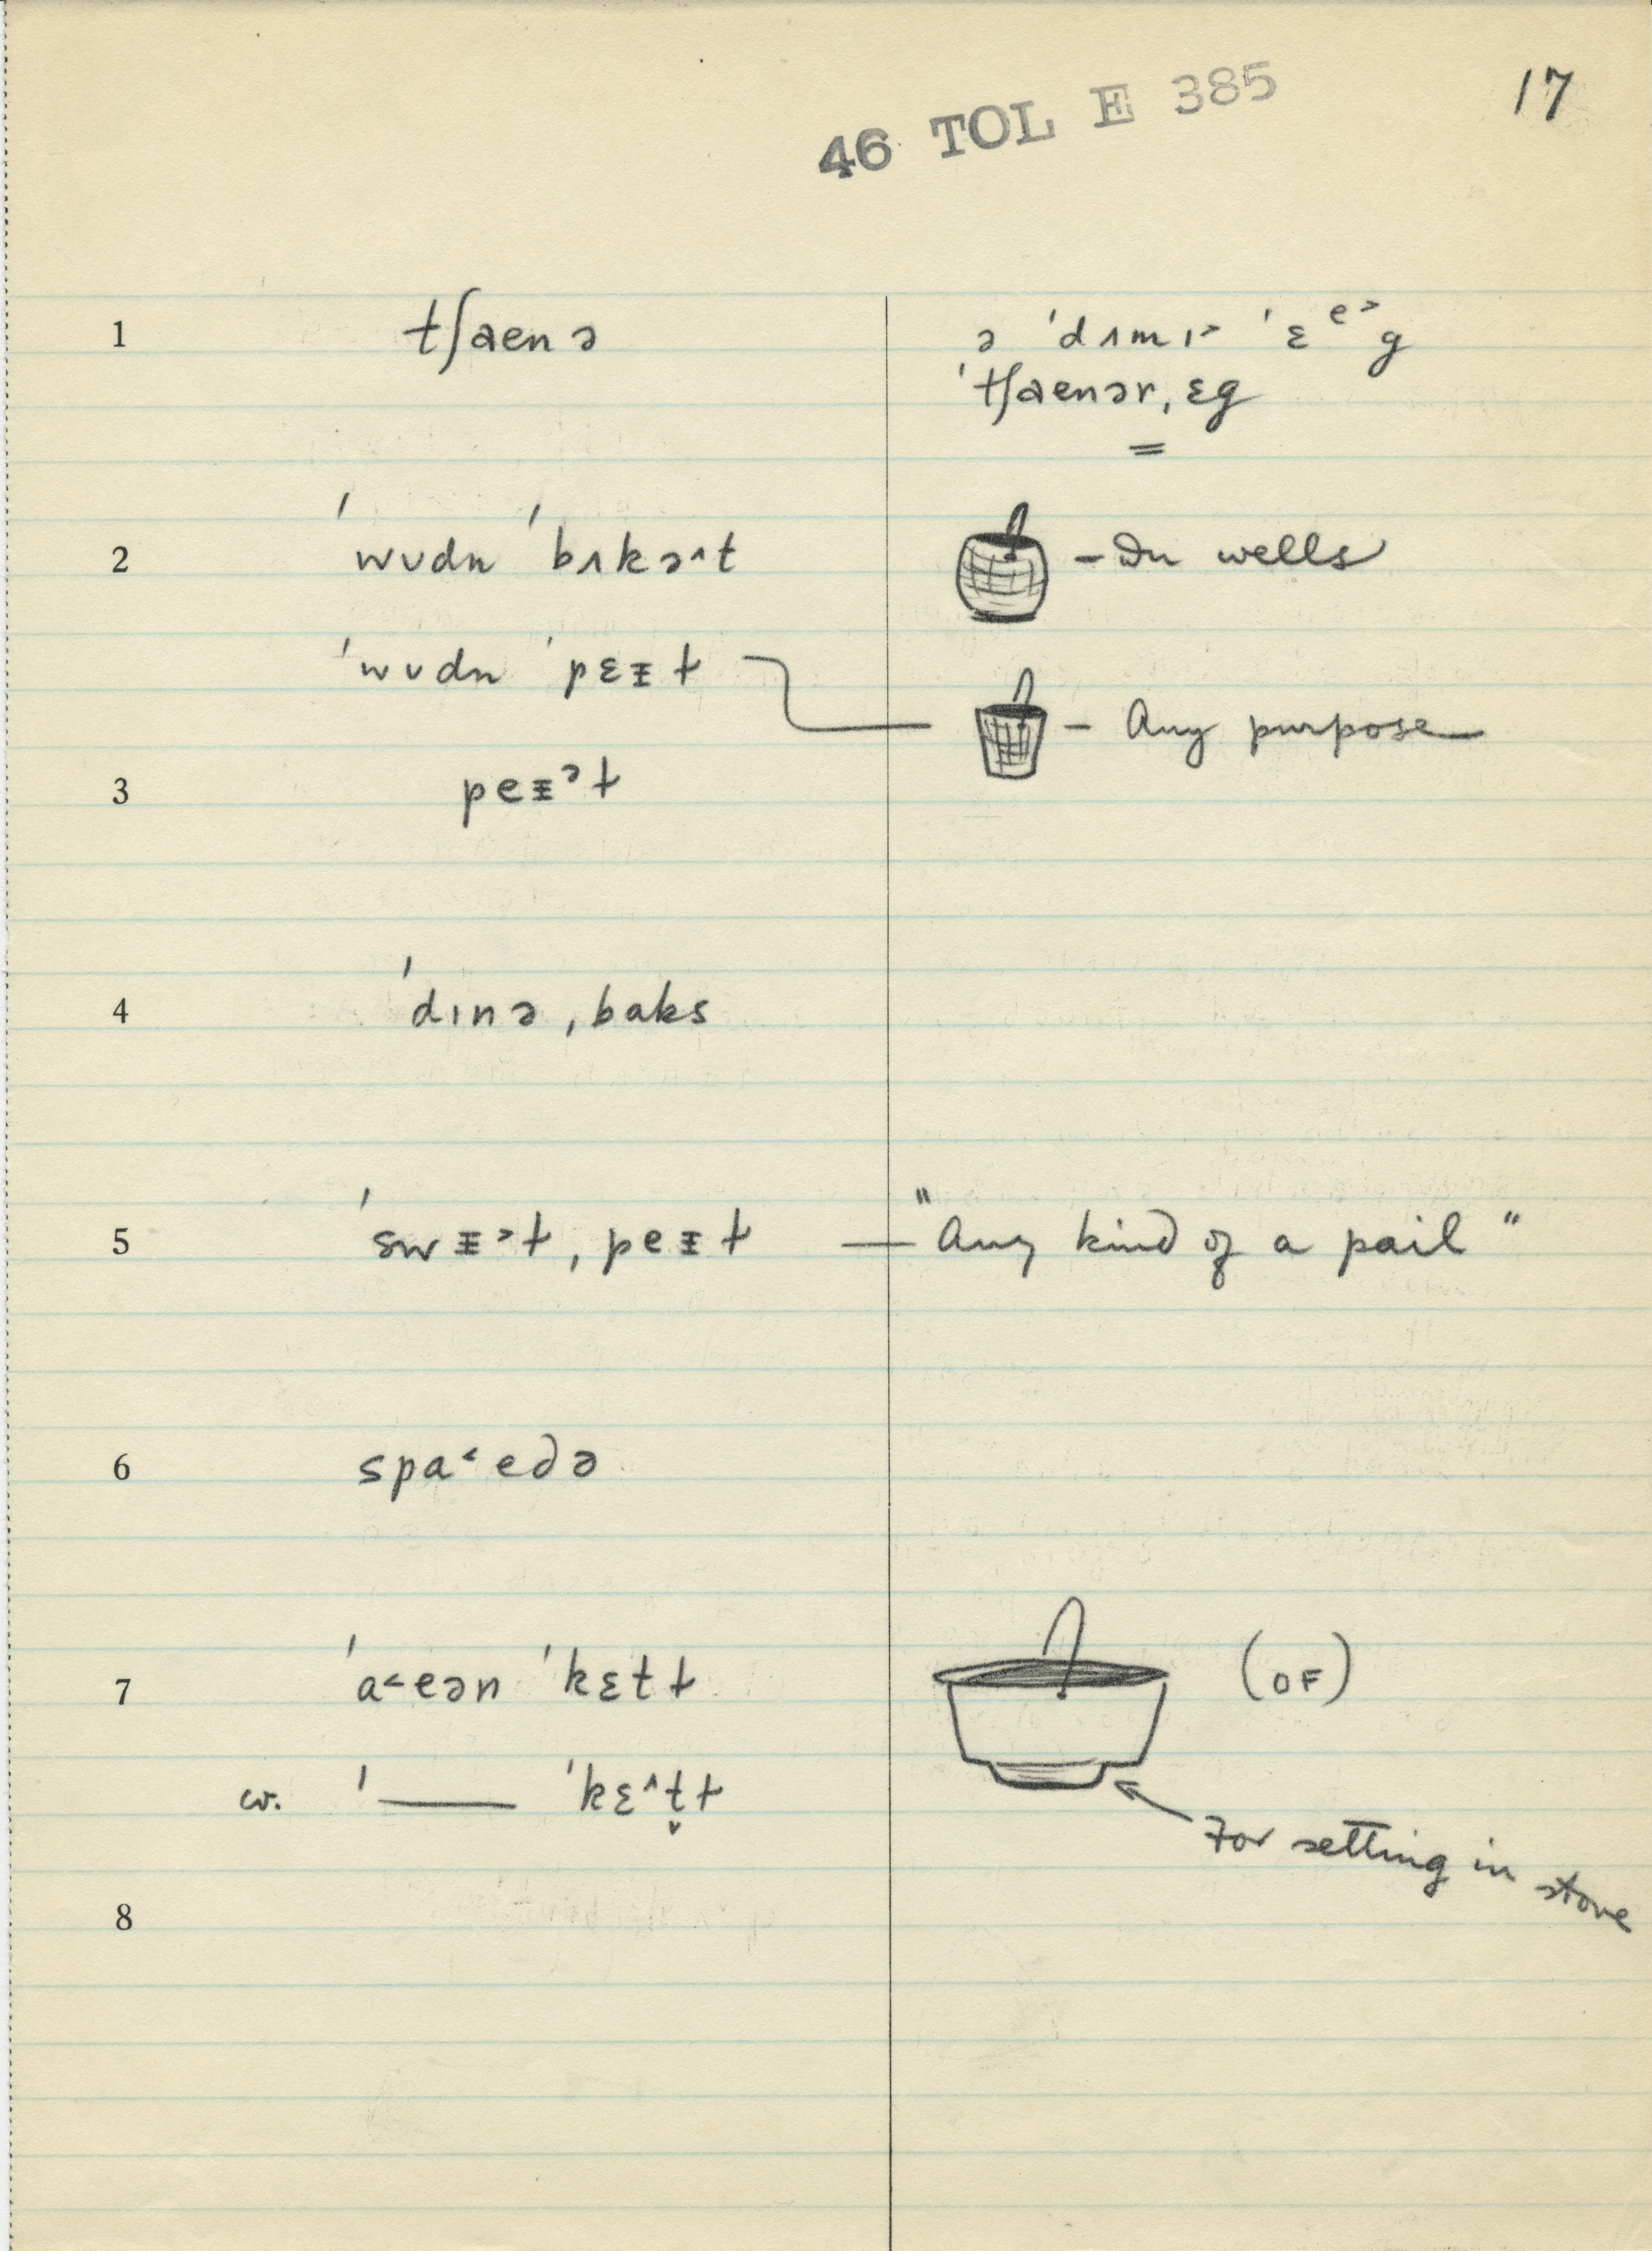 17
46 TOL E 385
1 tʃaenə
ə ˈdʌmɪ˃ ˈɛᵉ˃g
ˈtʃaenər ˌɛg
=
2 ˈˈwʊdn ˈˈbʌkə˄t
– In wells
ˈwʊdn ˈpɛᵻɫ
– Any purpose
3 peᵻᵊɫ
4 ˈˈdɪnə ˌbaks
5 ˈˈswᵻ˃ɫ ˌpeᵻɫ — "Any kind of a pail"
6 spa˂edə
7 ˈˈa˂eən ˈˈkɛtɫ
(OF)
cv. ˈ—— ˈkɛ˄t̬ɫ
For setting in stove
8